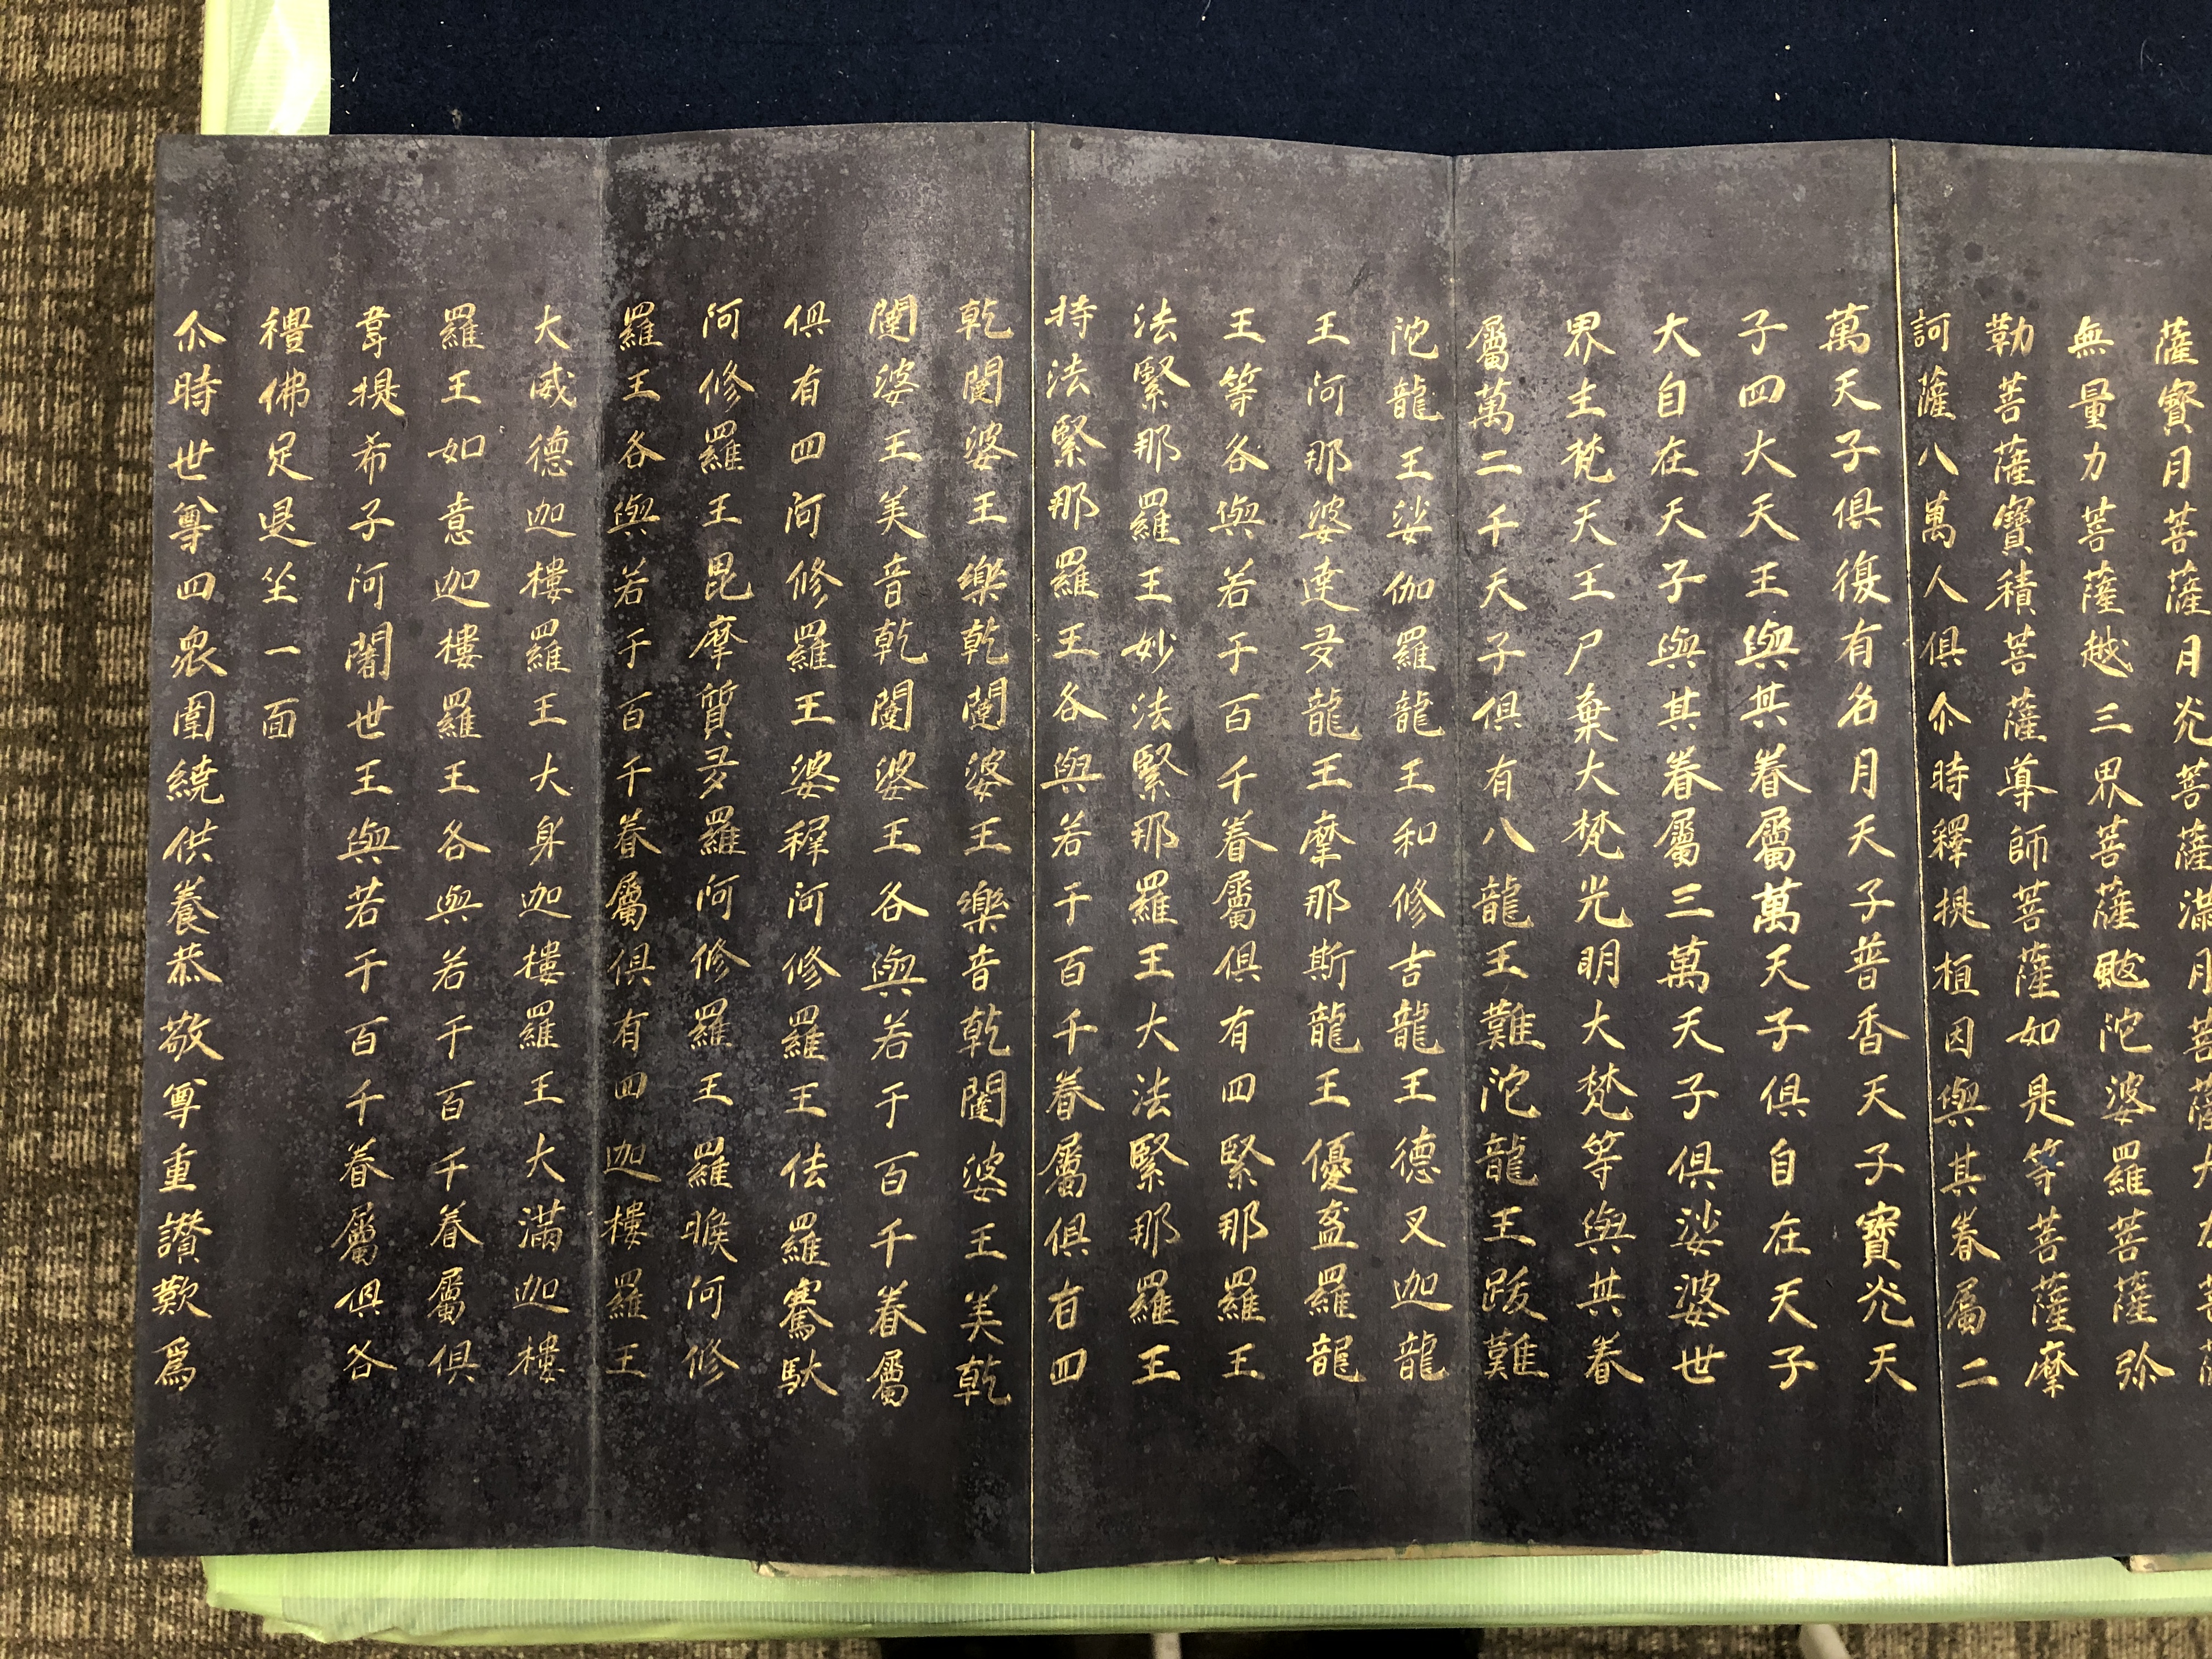 薩寶月菩薩月光菩薩滿月菩薩大力菩薩
無量力菩薩越三界菩薩颰陀婆羅菩薩弥
勒菩薩寶積菩薩導師菩薩如是等菩薩摩
訶薩八萬人俱尒時釋提桓因與其眷屬二
萬天子俱復有名月天子普香天子寶光天
子四大天王與其眷屬萬天子俱自在天子
大自在天子與其眷屬三萬天子俱娑婆世
界主梵天王尸棄大梵光明大梵等與其眷
屬萬二千天子俱有八龍王難陀龍王跋難
陀龍王娑伽羅龍王和修吉龍王德叉迦龍
王阿那婆達多龍王摩那斯龍王優盋羅龍
王等各與若干百千眷屬俱有四緊那羅王
法緊那羅王妙法緊那羅王大法緊那羅王
持法緊那羅王各與若干百千眷屬俱有四
乾闥婆王樂乾闥婆王樂音乾闥婆王美乾
闥婆王美音乾闥婆王各與若干百千眷屬
俱有四阿修羅王婆稚阿修羅王佉羅騫馱
阿修羅王毘摩質多羅阿修羅王羅睺阿修
羅王各與若干百千眷屬俱有四迦樓羅王
大威德迦樓羅王大身迦樓羅王大滿迦樓
羅王如意迦樓羅王各與若干百千眷屬俱
韋提希子阿闍世王與若干百千眷屬俱各
禮佛足退坐一面
尒時世尊四眾圍繞供養恭敬尊重讃歎爲